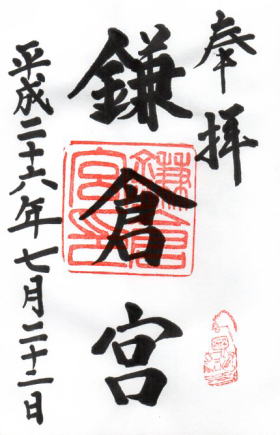 奉拝
鎌倉宮
平成二十六年七月二十二日